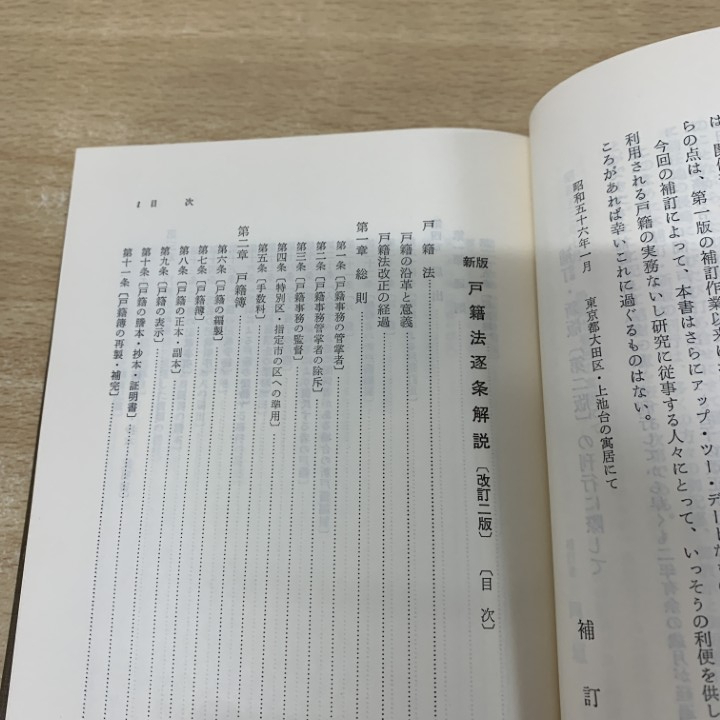 らの点は、第一版の補訂作業以来
今回の補訂によって、本書はさらにアップ・ツー・デート
利用される戸籍の実務ないし研究に従事する人々にとって、いっそうの利便を供し
ころがあれば幸いこれに過ぐるものはない。
昭和五十六年一月
東京都大田区・上池台の寓居にて
補訂
1 目次
新版 戸籍法逐条解説 〔改訂二版〕 〔目次〕
戸籍法
戸籍の沿革と意義
戸籍法改正の経過
第一章 総則
第一条〔戸籍事務の管掌者〕
第二条〔戸籍事務管掌者の除斥〕
第三条〔戸籍事務の監督〕
第四条〔特別区・指定市の区への準用〕
第五条〔手数料〕
第二章 戸籍簿
第六条〔戸籍の編製〕
第七条〔戸籍簿〕
第八条〔戸籍の正本・副本〕
第九条〔戸籍の表示〕
第十条〔戸籍の謄本・抄本・証明書〕
第十一条〔戸籍簿の再製・補完〕